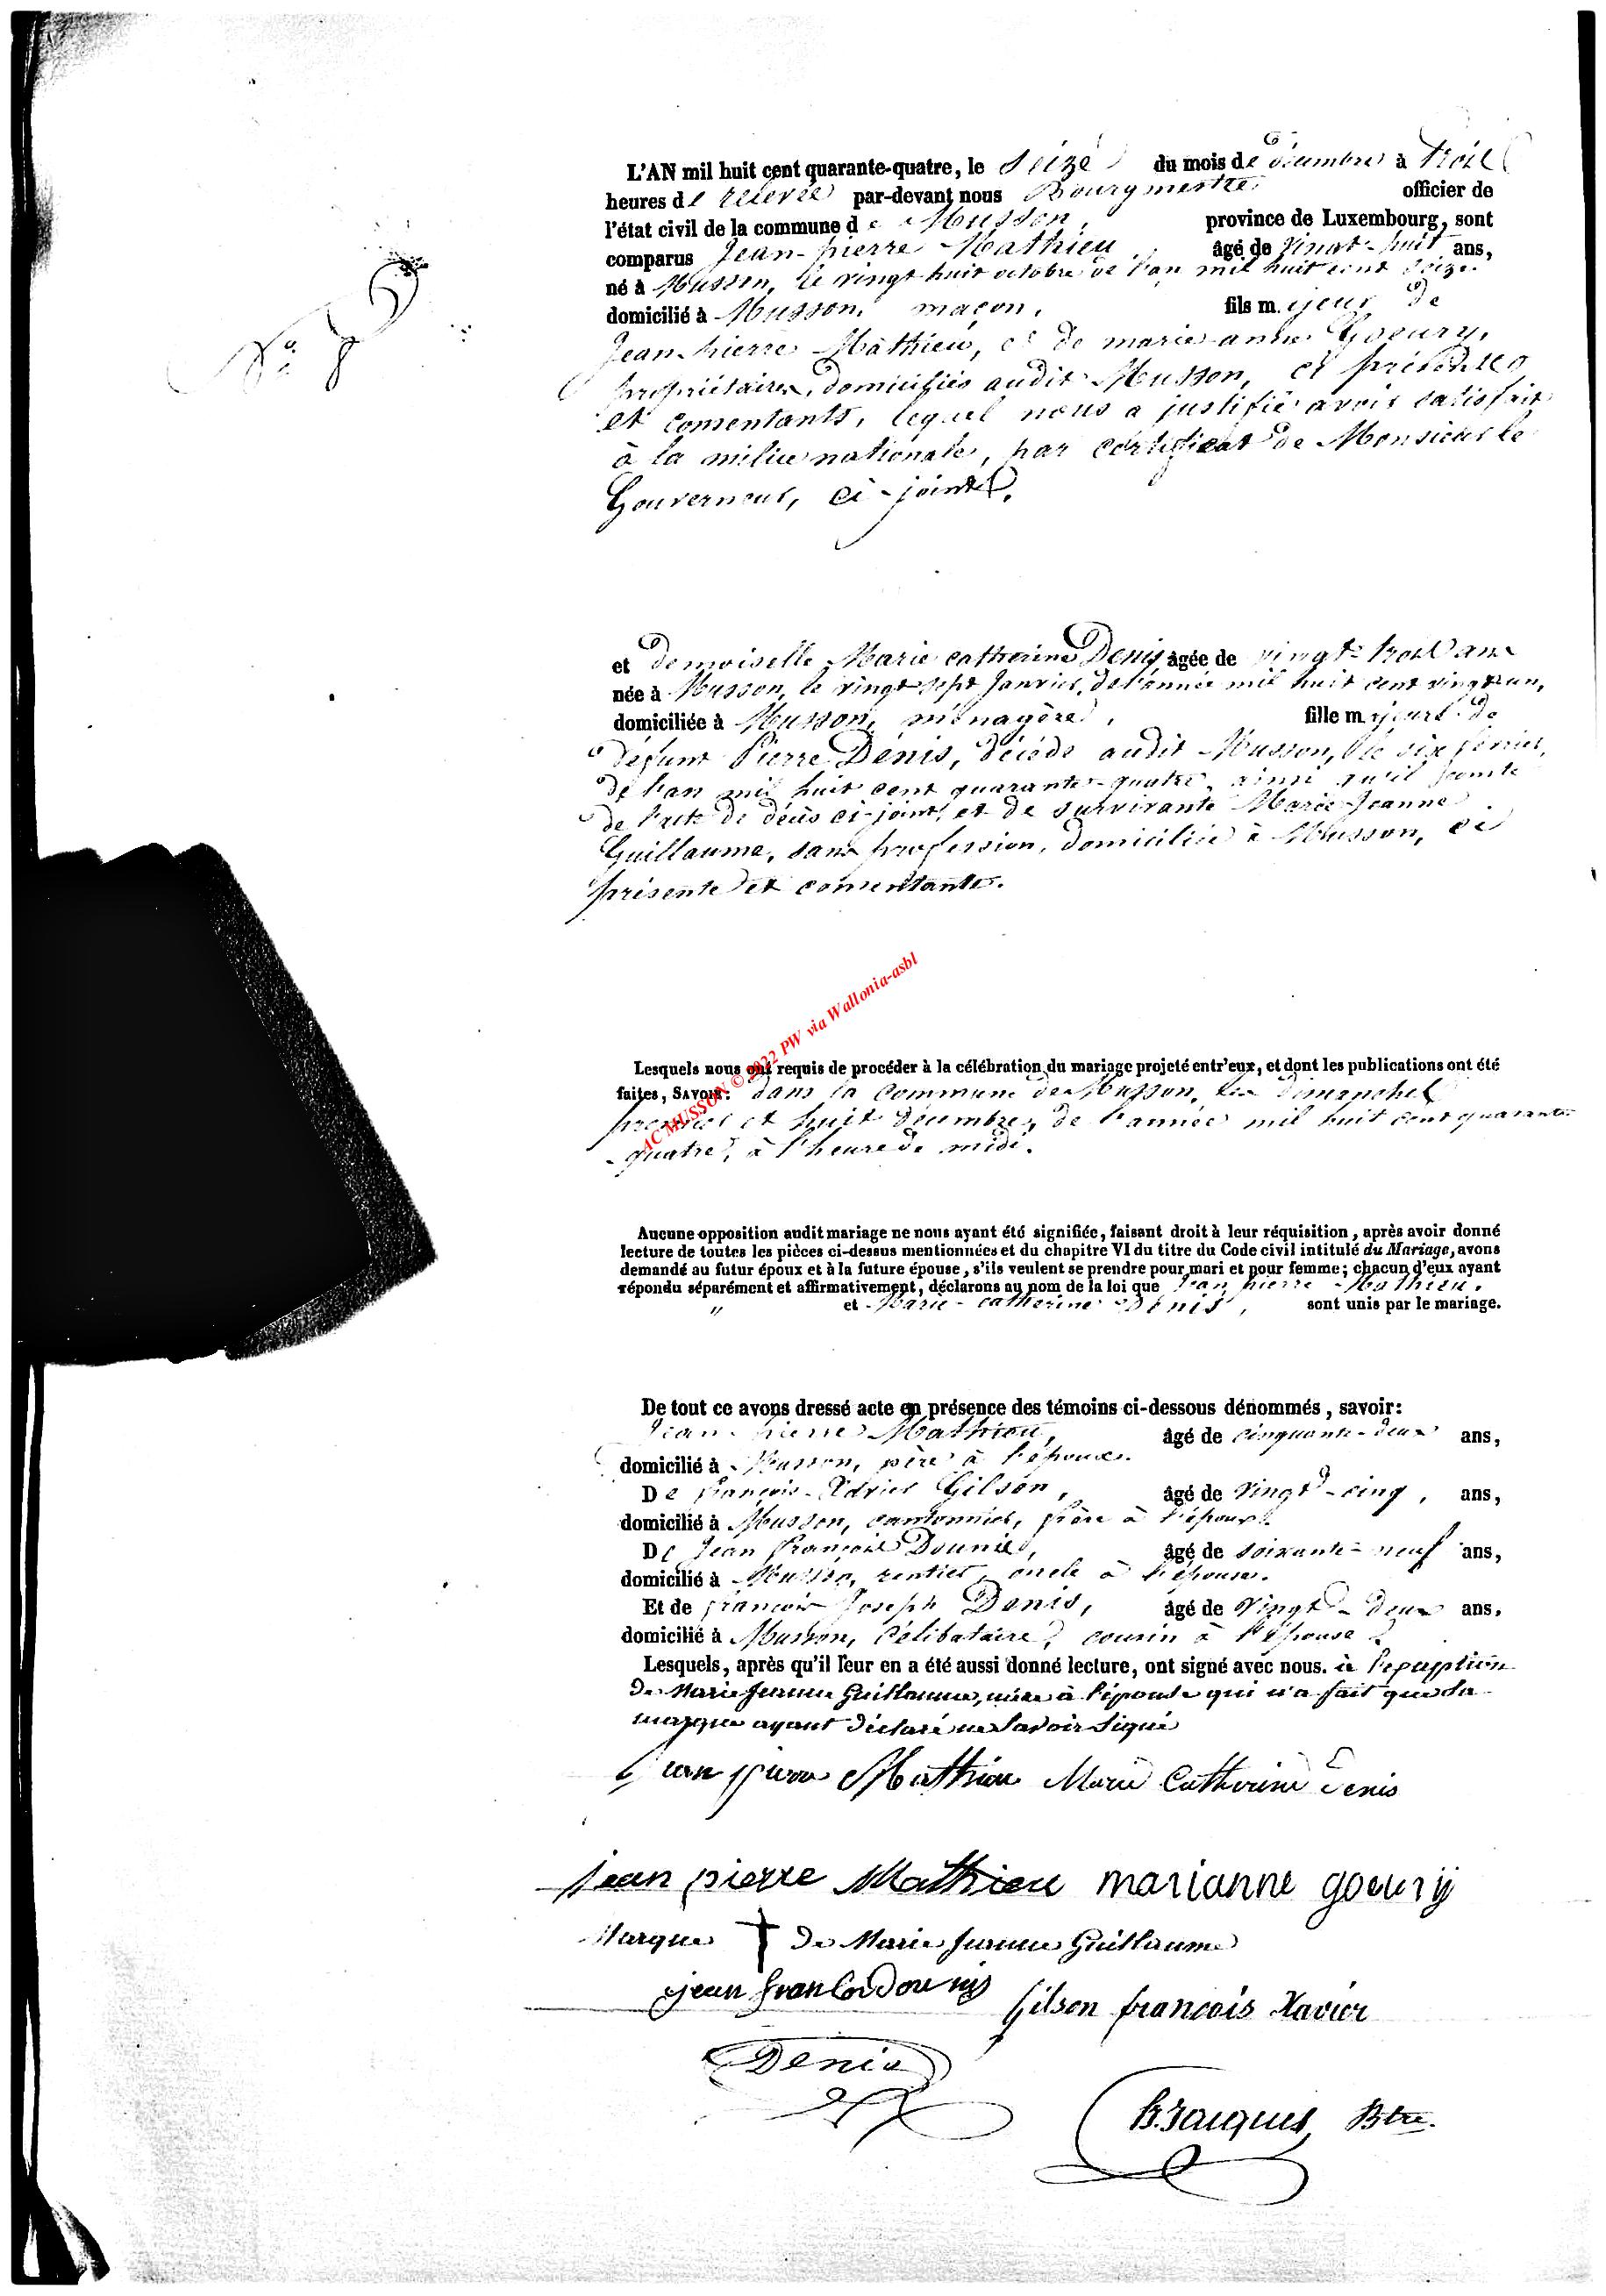 L'AN mil huit cent quarante-quatre, le seize du mois de décembre à trois
heures de relevée par-devant nous Bourgmestre officier de
l'état civil de la commune de Musson, province de Luxembourg, sont
comparus Jean-pierre Mathieu, âgé de vingt-huit ans,
né à Musson, le vingt huit octobre de l'an mil huit cent seize.
domicilié à Musson, maçon, fils majeur de
N° 7
Jean-pierre Mathieu, et de marie-anne Goeury,
propriétaires, domiciliés audit Musson, et présents
et consentants, lequel nous a justifié avoir satisfait
à la milice nationale, par certificat de Monsieur le
Gouverneur, ci-joint.
et demoiselle Marie catherine Denis, âgée de vingt-trois ans
née à Musson, le vingt sept Janvier, de l'année mil huit cent vingt un,
domiciliée à Musson, ménagère, fille majeure de
défunt Pierre Dénis, décédé audit Musson, le six février,
de l'an mil huit cent quarante-quatre, ainsi qu'il conste
de l'acte de décès ci-joint, et de survivante Marie-Jeanne
Guillaume, sans profession, domiciliée à Musson, ci
présente et consentante.
Lesquels nous ont requis de procéder à la célébration du mariage projeté entr'eux, et dont les publications ont été
faites, SAVOIR: dans la Commune de Musson, les dimanches
premier et huit décembre, de l'année mil huit cent quarante
-quatre, à l'heure de midi.
AC MUSSON © 2022 PW via Wallonia-asbl
Aucune opposition audit mariage ne nous ayant été signifiée, faisant droit à leur réquisition, après avoir donné
lecture de toutes les pièces ci-dessus mentionnées et du chapitre VI du titre du Code civil intitulé du Mariage, avons
demandé au futur époux et à la future épouse, s'ils veulent se prendre pour mari et pour femme; chacun d'eux ayant
répondu séparément et affirmativement, déclarons au nom de la loi que Jean pierre Mathieu,
" et Marie-catherine Dénis, sont unis par le mariage.
De tout ce avons dressé acte en présence des témoins ci-dessous dénommés, savoir:
Jean-pierre Mathieu, âgé de cinquante-deux ans,
domicilié à Musson, père à l'époux.
De françois-Xavier Gilson, âgé de vingt-cinq, ans,
domicilié à Musson, cantonnier, frère à l'époux.
De Jean françois Dounis, âgé de soixante-neuf ans,
domicilié à Musson, rentier, oncle à l'épouse.
Et de françois Joseph Denis, âgé de vingt-deux ans.
domicilié à Musson, Célibataire, cousin à l'épouse.
Lesquels, après qu'il leur en a été aussi donné lecture, ont signé avec nous. à l'exception
de Marie Jeanne Guillaume, mère à l'épouse qui n'a fait que sa
marque ayant déclaré ne savoir signé
Jean pierre Mathieu Marie Catherine Denis
jean pierre Mathieu marianne goeury
Marque † de Marie Jeanne Guillaume
jean francois Dounis Gilson francois Xavier
Denis
B. Jacques Btre.